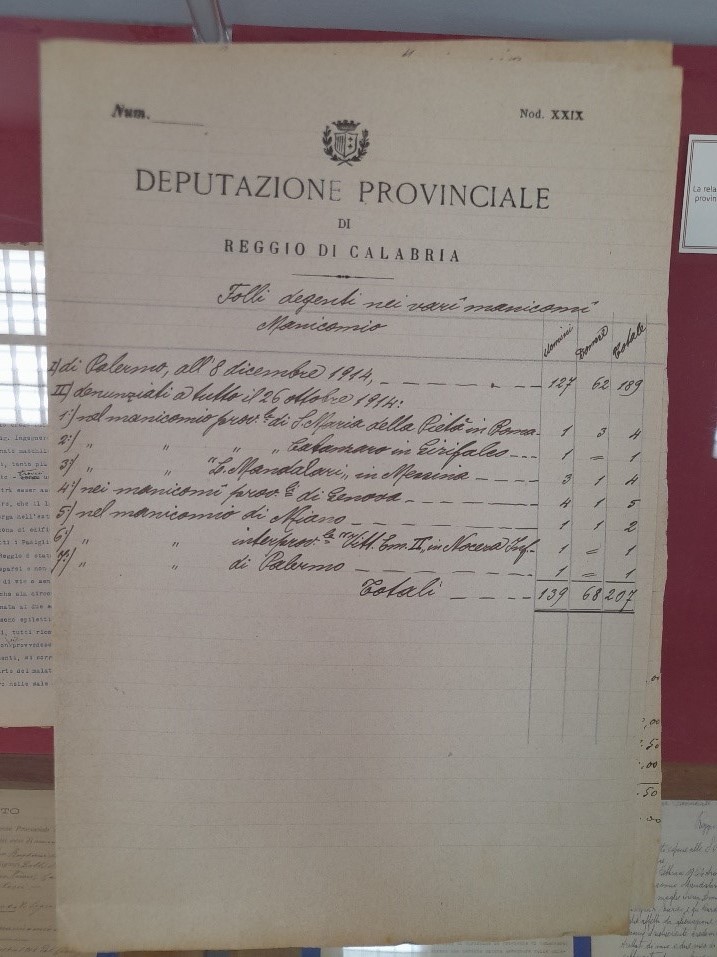 Num.
Nod. XXIX
DEPUTAZIONE PROVINCIALE
DI
REGGIO DI CALABRIA
Folli degenti nei varî manicomî
Manicomio Uomini Donne Totale
I) di Palermo, all'8 dicembre 1914, 127 62 189
II) denunziati a tutto il 26 ottobre 1914:
1°) nel manicomio prov.le di S. Maria della Pietà in Roma 1 3 4
2°) „ „ „ „ Catanzaro in Girifalco 1 = 1
3°) „ „ "L. Mandalari„ in Messina 3 1 4
4°) nei manicomî prov.li di Genova 4 1 5
5°) nel manicomio di Miano 1 1 2
6°) „ „ interprov.le "Vitt. Em. II„ in Nocera Inf. 1 = 1
7°) „ „ di Palermo 1 = 1
Totali 139 68 207
La rela
provin